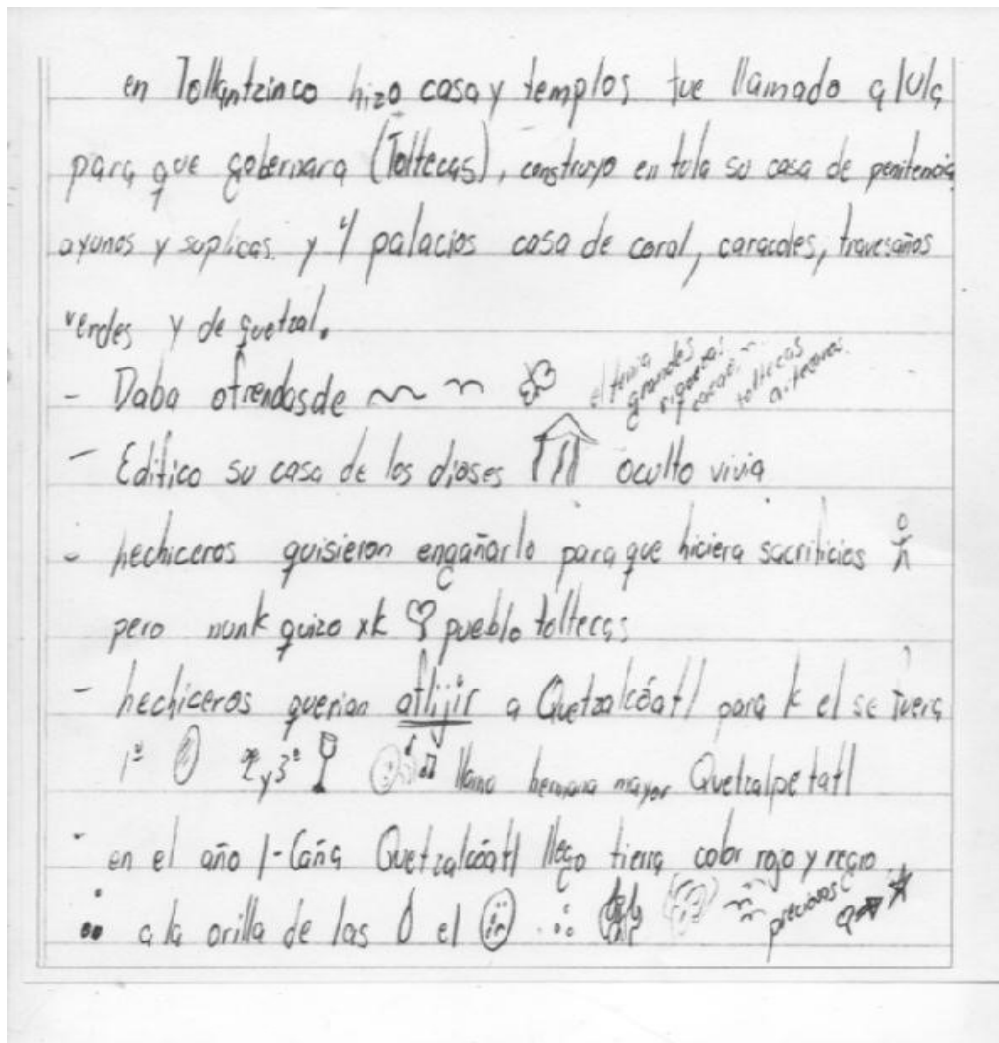 en Tollantzinco hizo casa y templos fue llamado a tula
para que gobernara (Toltecas), construyo en tula su casa de penitencia
ayunos y suplicas y 4 palacios casa de coral, caracoles, travesaños
verdes y de quetzal.
- Daba ofrendas de
el tenia grandes riquezas cacao, toltecas artesanos.
- Edifico su casa de los dioses oculto vivia
- hechiceros quisieron engañarlo para que hiciera sacrificios
pero nunk quizo xk pueblo toltecas
- hechiceros querian aflijir a Quetzalcóatl para k el se fuera
1º 2º y 3º llama hermana mayor Quetzalpetatl
- en el año 1-Caña Quetzalcóatl llego tierra color rojo y negro
a la orilla de las el preciosas a